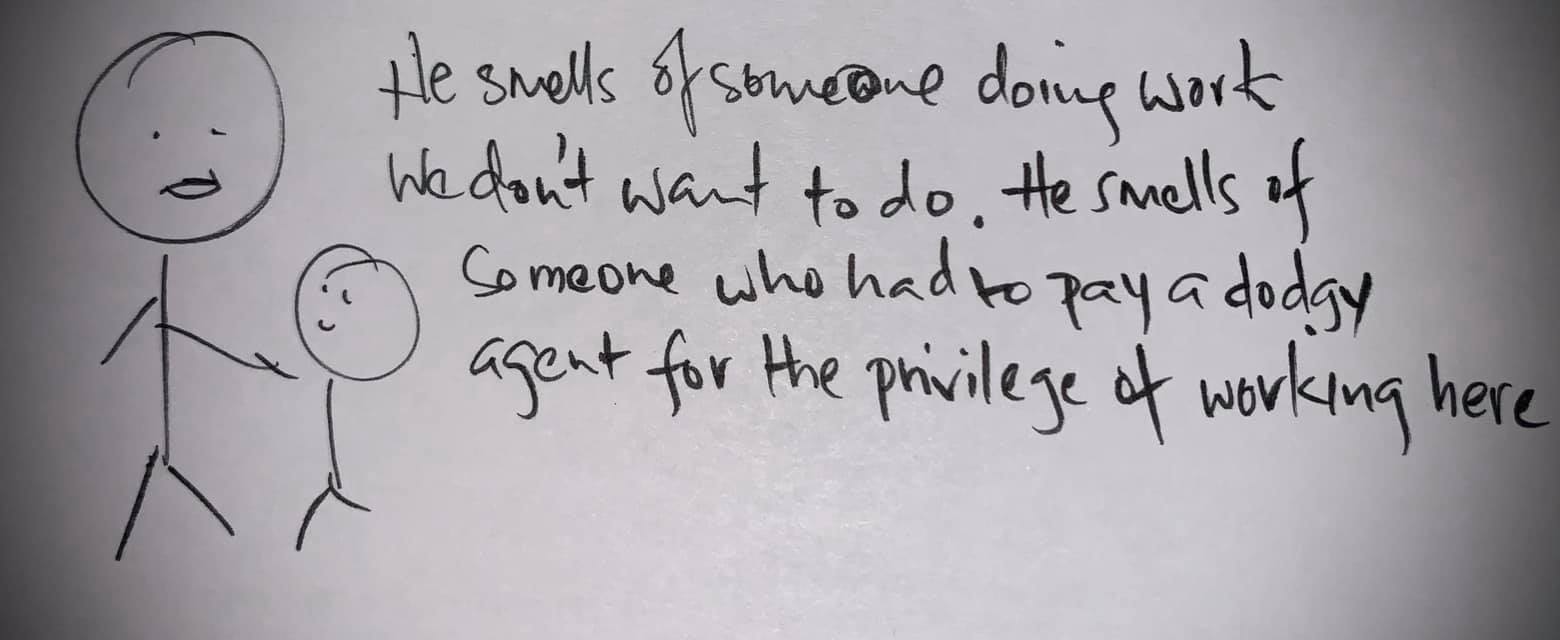 He smells of someone doing work
We don't want to do. He smells of
Someone who had to pay a dodgy
agent for the privilege of working here